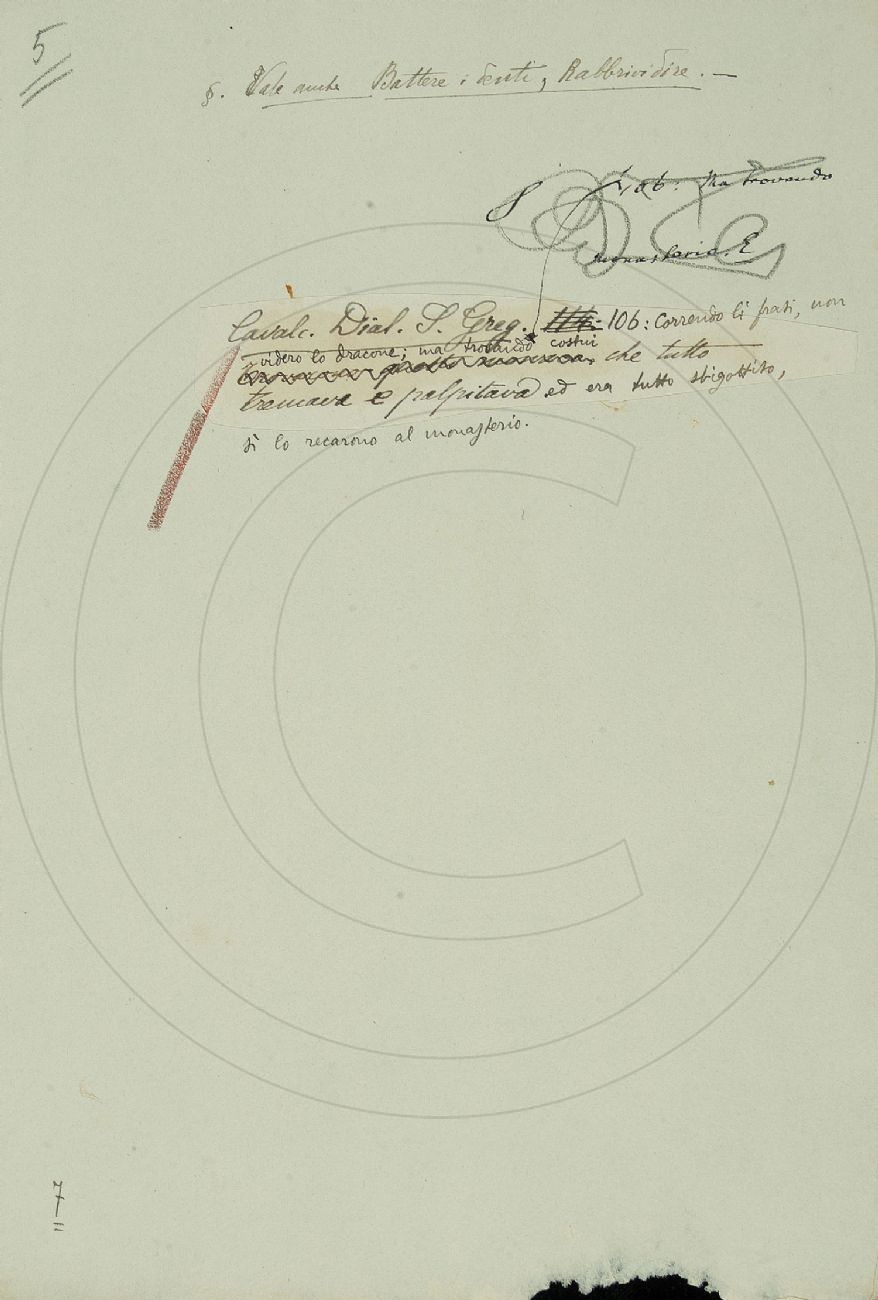 5
§. Vale anche Battere i denti, Rabbrividire. —
106: Ma trovando
monasterio. E
Cavalc. Dial. S. Greg. 106: Correndo li frati, non
videro lo dracone; ma trovando costui
che tutto
tremava e palpitava ed era tutto sbigottito,
sì lo recarono al monasterio.
7